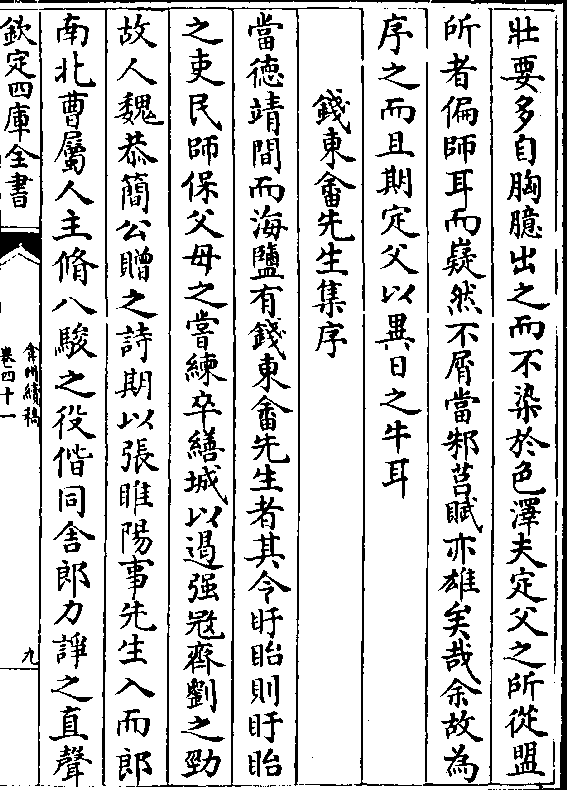 壯要多自胸臆出之而不染於色澤夫定父之所從盟
所者偏師耳而嶷然不屑當邾莒賦亦雄矣哉余故為
序之而且期定父以異日之牛耳
錢東畬先生集序
當德靖間而海鹽有錢東畬先生者其令盱眙則盱眙
之吏民師保父母之嘗練卒繕城以遏强寇齊劉之勁
故人魏恭簡公贈之詩期以張睢陽事先生入而郎
南北曹屬人主脩八駿之役偕同舍郎力諍之直聲
欽定四庫全書
弇州續稿
卷四十一
九